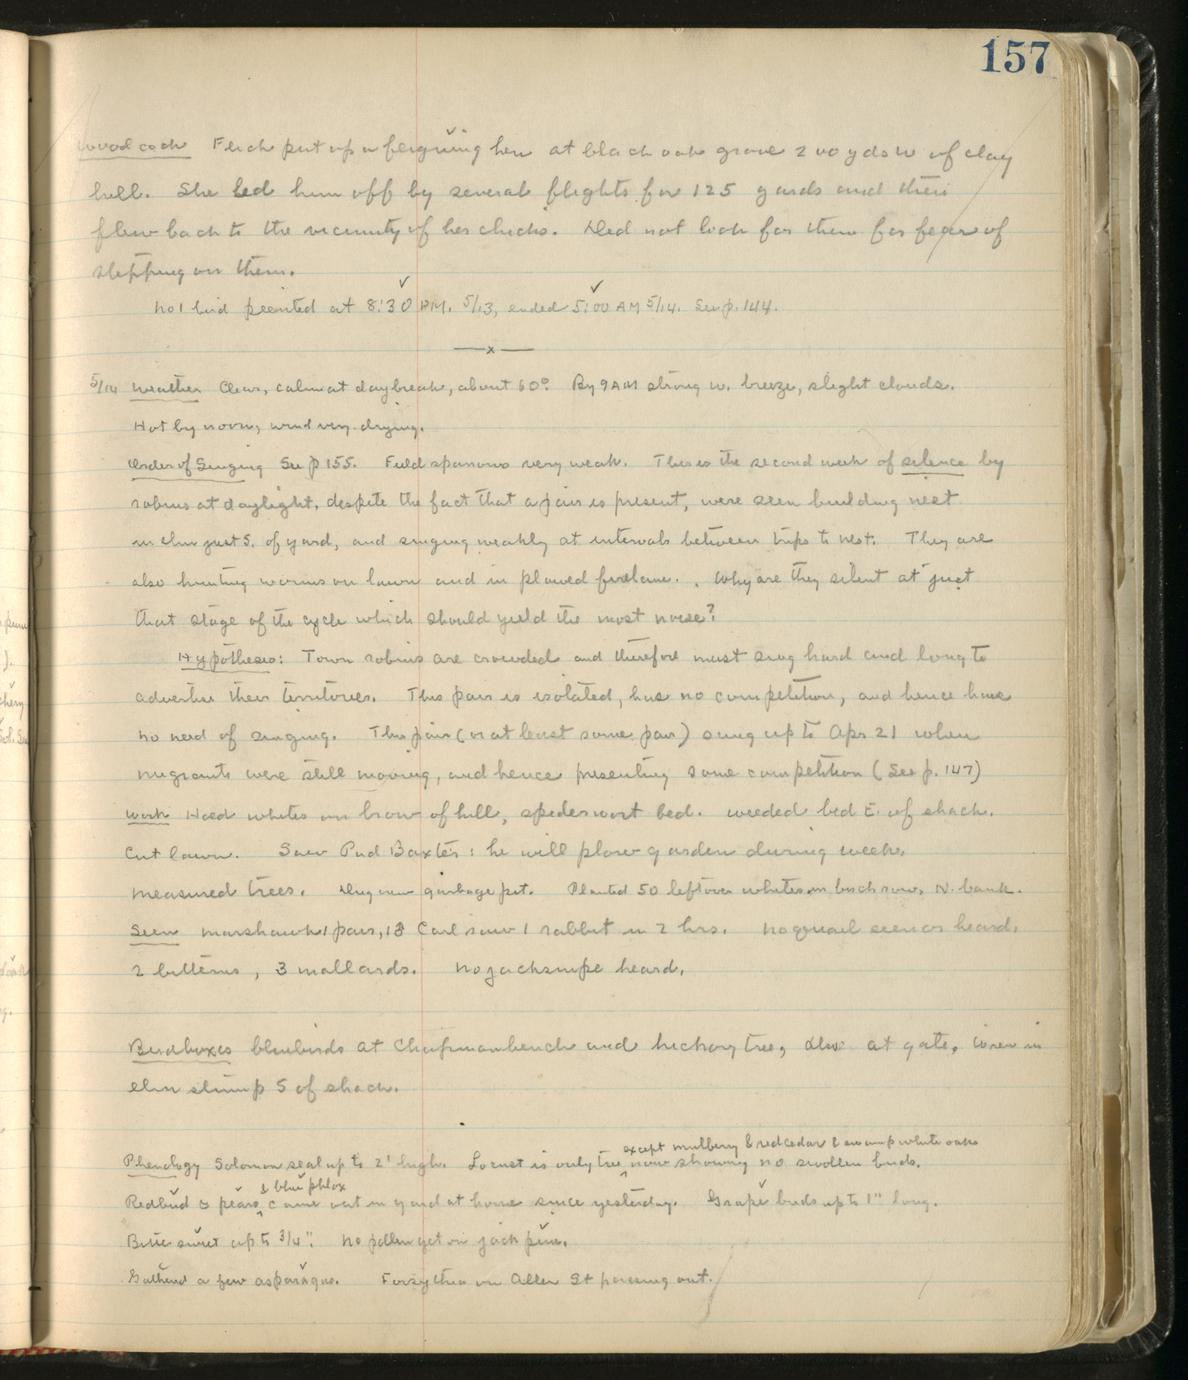 157
Woodcock Flick put up a feigning hen at black oak grove 200 yds W of clay
hill. She led him off by several flights for 125 yards and then
flew back to the vicinity of her chicks. Did not look for them for fear of
stepping on them.
No 1 bird peented at 8:30 PM, 5/13, ended 5:00 AM 5/14. See p. 144.
x
5/14 Weather Clear, calm at daybreak, about 60°. By 9 AM strong W. breeze, slight clouds.
Hot by noon, wind very drying.
Order of Singing See p 155. Field sparrows very weak. This is the second week of silence by
robins at daylight, despite the fact that a pair is present, were seen building nest
in elm just S. of yard, and singing weakly at intervals between trips to nest. They are
also hunting worms on lawn and in plowed firelane. Why are they silent at just
that stage of the cycle which should yield the most noise?
Hypothesis: Town robins are crowded and therefore must sing hard and long to
advertise their territories. This pair is isolated, has no competition, and hence have
no need of singing. This pair (or at least some pair) sang up to Apr 21 when
migrants were still moving, and hence presenting some competition (See p. 147)
Work Hoed whites on brow of hill, spiderwort bed. Weeded bed E. of shack.
Cut lawn. Saw Pud Baxter: he will plow garden during week.
Measured trees. Dug new garbage pit. Planted 50 leftover whites in birch row, N. bank.
Seen Marshawk 1 pair, Carl saw 1 rabbit in 2 hrs. No quail seen or heard.
2 bitterns, 3 mallards. No jacksnipe heard.
Birdboxes bluebirds at Chapman bench and hickory tree, also at gate, wren in
elm stump S of shack.
except mulberry & redcedar & swamp white oak
Phenology Solomon seal up to 2' high. Locust is only tree now showing no swollen buds.
& blue phlox
Redbud & pears came out in yard at home since yesterday. Grape buds up to 1" long.
Bittersweet up to 3/4". No pollen yet on jack pine.
Gathered a few asparagus. Forsythia on Allen St passing out.